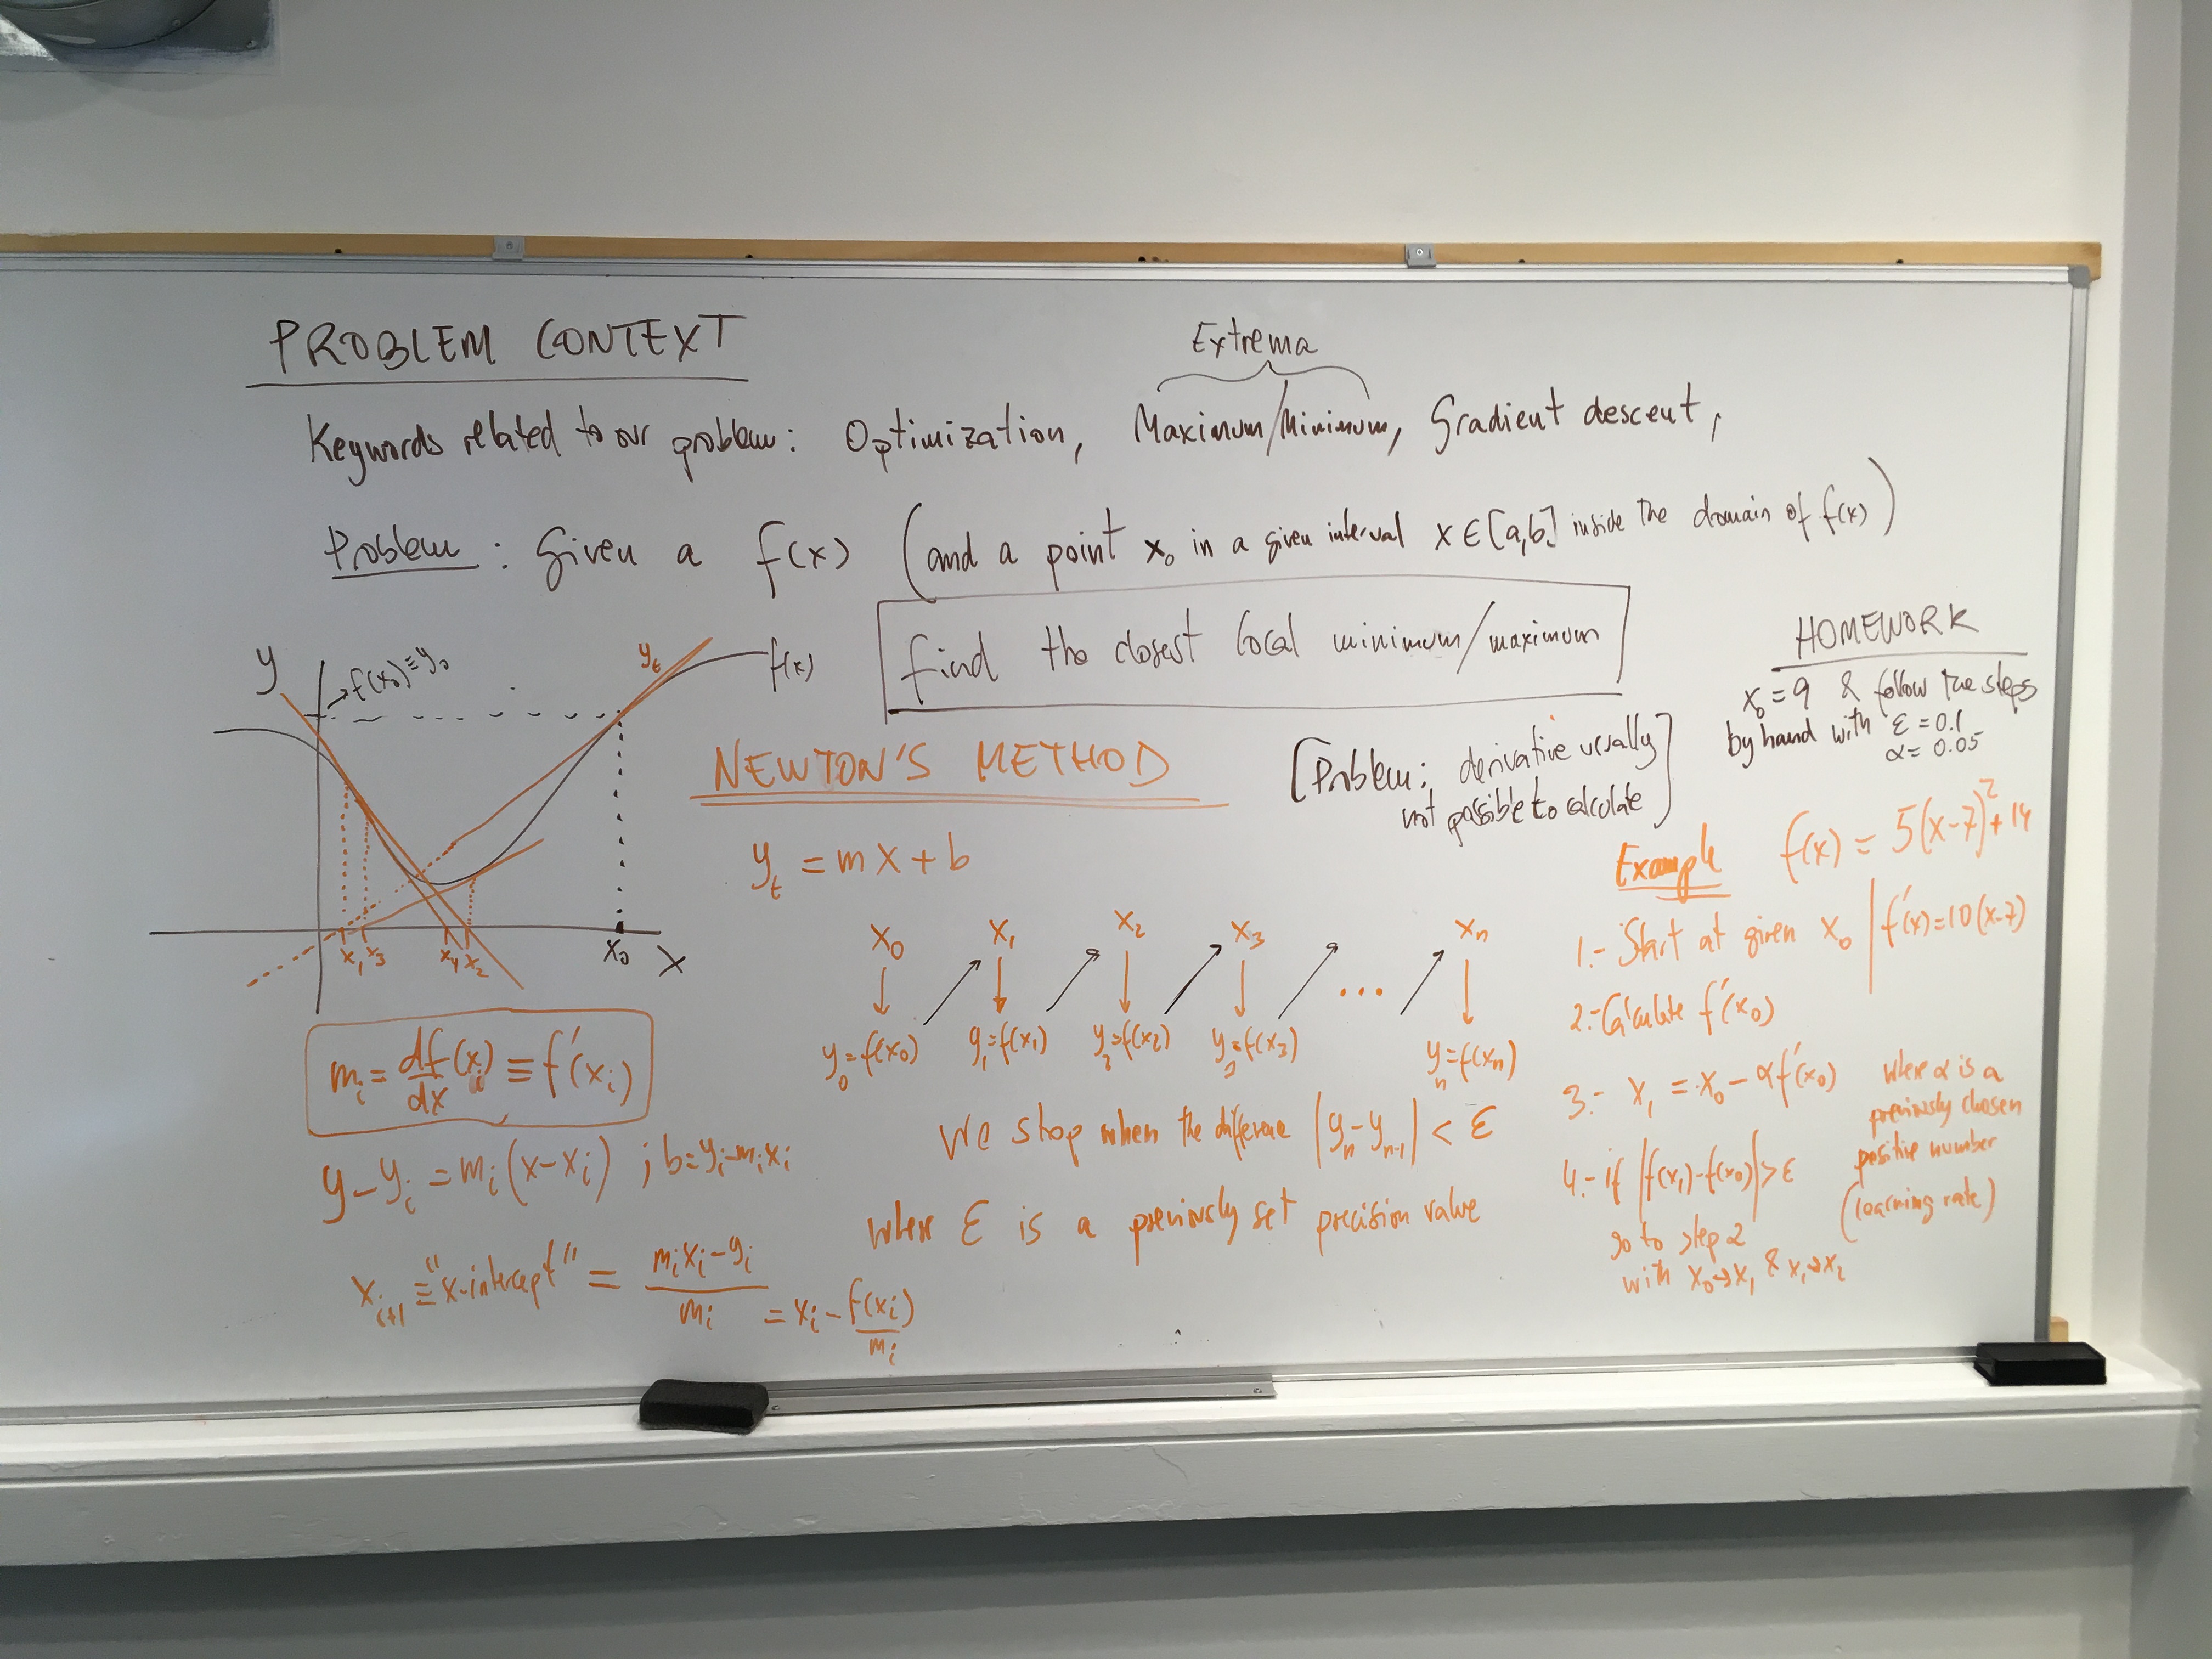 PROBLEM CONTEXT
Extrema
Keywords related to our problem: Optimization, Maximum/Minimum, Gradient descent,
Problem: Given a f(x) (and a point x₀ in a given interval x∈[a,b] inside the domain of f(x))
find the closest local minimum/maximum
y
→f(x₀)≡y₀
y_t
f(x)
x₁ x₃ x₄ x₂ x₀ x
m_i = df/dx (x_i) ≡ f'(x_i)
y-y_i = m_i(x-x_i) ; b=y_i-m_i x_i
x_{i+1} ≡ "x-intercept" = (m_i x_i - y_i)/m_i = x_i - f(x_i)/m_i
NEWTON'S METHOD
[Problem: derivative usually
not possible to calculate]
y_t = mx+b
x₀ x₁ x₂ x₃ ... x_n
y₀=f(x₀) y₁=f(x₁) y₂=f(x₂) y₃=f(x₃) y_n=f(x_n)
We stop when the difference |y_n-y_{n-1}| < ε
where ε is a previously set precision value
HOMEWORK
x₀=9 & follow the steps
by hand with ε=0.1
α=0.05
Example f(x) = 5(x-7)²+14
1.- Start at given x₀ | f'(x)=10(x-7)
2.- Calculate f'(x₀)
3.- x₁ = x₀ - αf'(x₀)
where α is a
previously chosen
positive number
(learning rate)
4.- if |f(x₁)-f(x₀)|>ε
go to step 2
with x₀→x₁ & x₁→x₂